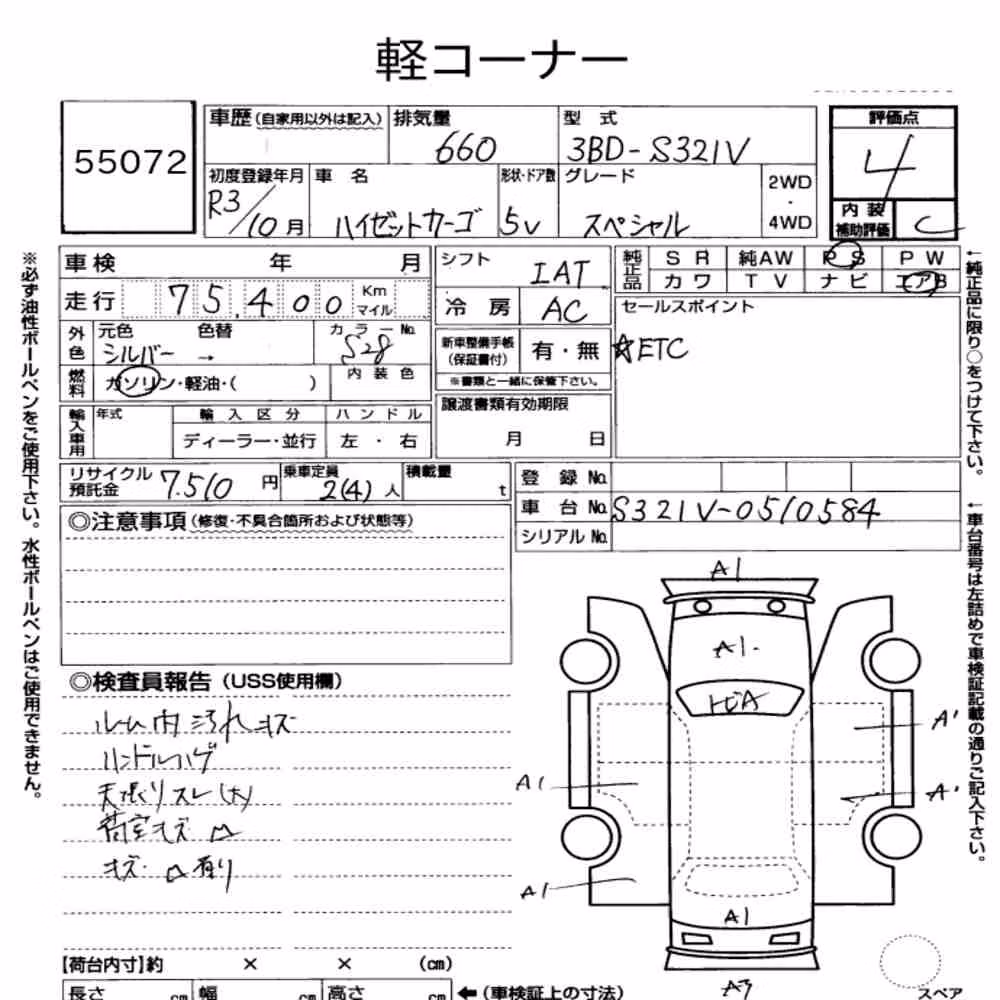 軽コーナー
55072
車歴(自家用以外は記入) 排気量 660 型式 3BD-S321V
初度登録年月 R3/10月 車名 ハイゼットカーゴ 形状・ドア数 5V グレード スペシャル 2WD・4WD
評価点 4
内装補助評価 C
車検 年 月
走行 75,400 Km マイル
外色 元色 シルバー 色替 → カラーNo. S28
燃料 ガソリン・軽油・( ) 内装色
輸入車用 年式 輸入区分 ディーラー・並行 ハンドル 左・右
シフト IAT
冷房 AC
新車整備手帳(保証書付) 有・無
※書類と一緒に保管下さい。
譲渡書類有効期限
月 日
純正品 SR 純AW PS PW
カワ TV ナビ エアB
セールスポイント
☆ETC
リサイクル預託金 7.510円 乗車定員 2(4)人 積載量 t
登録No.
車台No. S321V-0510584
シリアルNo.
◎注意事項(修復・不具合箇所および状態等)
◎検査員報告(USS使用欄)
ルーム内汚れキズ
ハンドルハゲ
天張りスレ(大)
荷室キズ凹
キズ・凹有り
A1
A1.
A1
A1
A1
【荷台内寸】約 × × (cm)
長さ cm 幅 cm 高さ cm ←(車検証上の寸法)
スペア
※必ず油性ボールペンをご使用下さい。水性ボールペンはご使用できません。
←純正品に限り○をつけて下さい。
←車台番号は左詰めで車検証記載の通りご記入下さい。